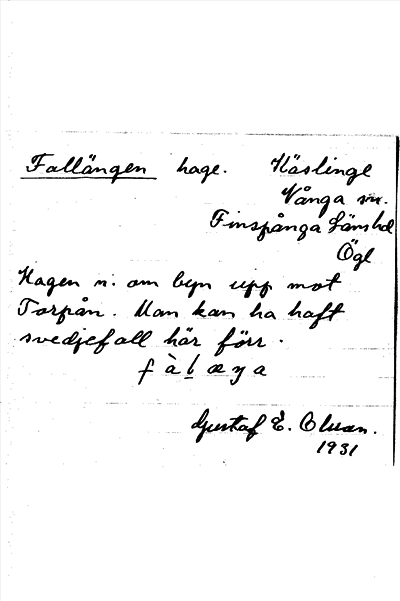 Fallängen hage. Häslinge
Vånga sn.
Finspånga Länshd
Ögl
Hagen n. om byn upp mot
Torpån. Man kan ha haft
svedjefall här förr.
Gustaf E.
1931